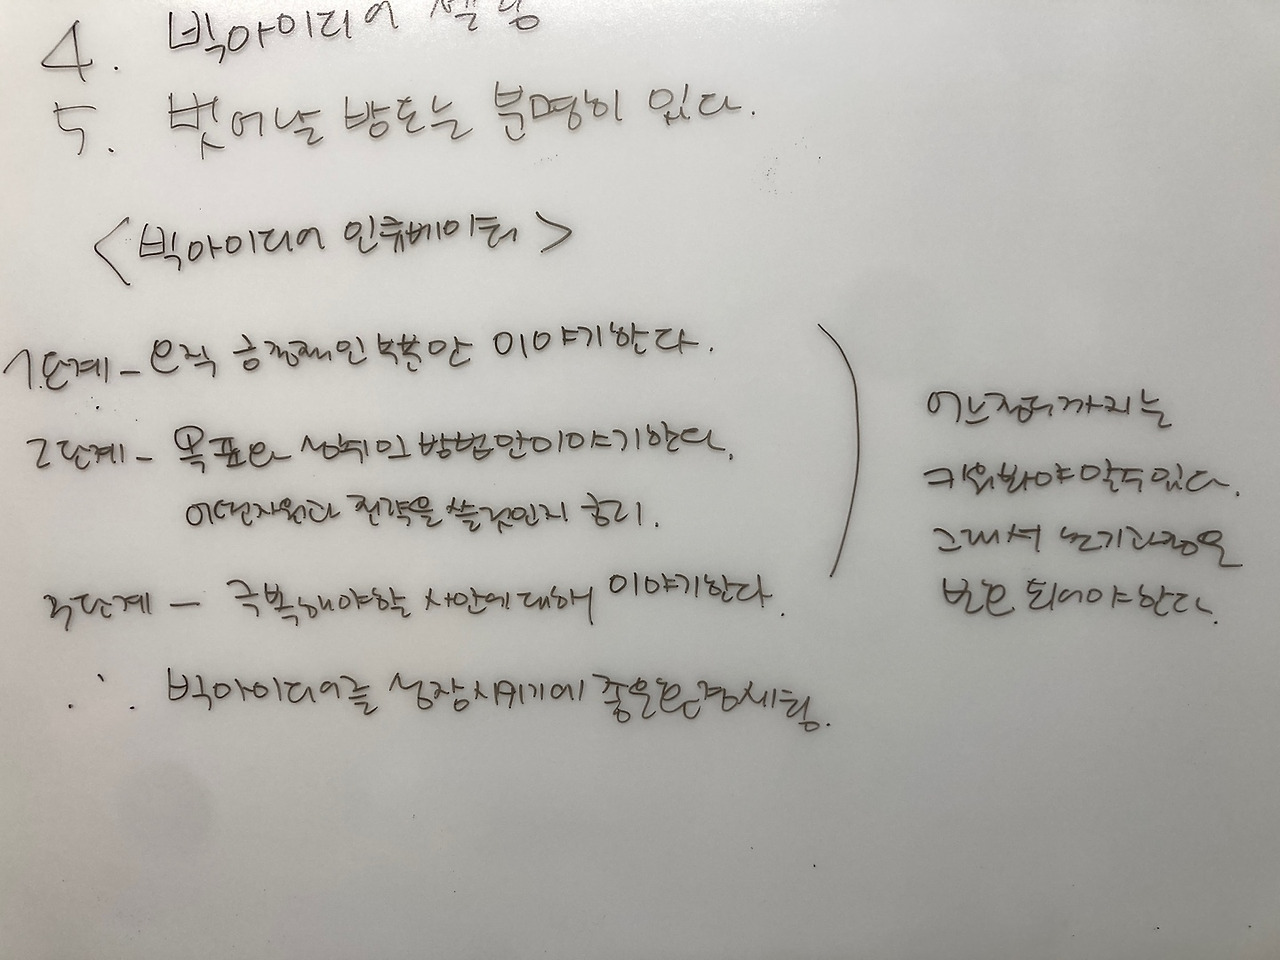 4. 빅아이디어 셀링
5. 벗어날 방도는 분명히 있다.
<빅아이디어 인큐베이터>
1단계 - 오직 긍정적인 부분만 이야기한다.
2단계 - 목표와 성취의 방법만이야기한다.
어떤자원과 전략을 쓸것인지 궁리.
3단계 - 극복해야할 사안에대해 이야기한다.
∴ 빅아이디어를 성장시키기에 좋은환경세팅.
어느정도까지는
키워봐야알수있다.
그래서 는기과정은
반복 되어야한다.